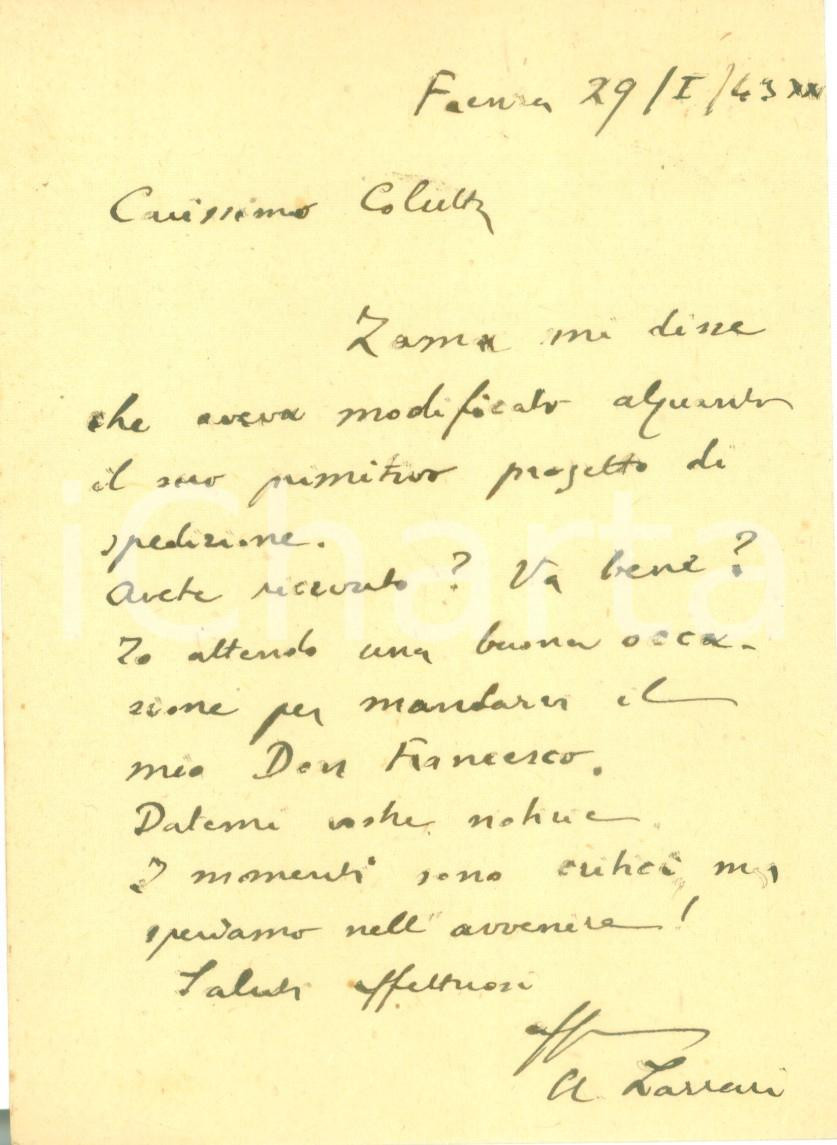 Faenza 29/I/43 XXI
Carissimo
Zama mi disse
che aveva modificato alquanto
il suo primitivo progetto di
spedizione.
Avete ricevuto? Va bene?
Io attendo una buona occa-
sione per mandarvi il
mio Don Francesco.
Datemi vostre notizie
I momenti sono critici, ma
speriamo nell'avvenire!
Saluti affettuosi
aff
A
iCharta